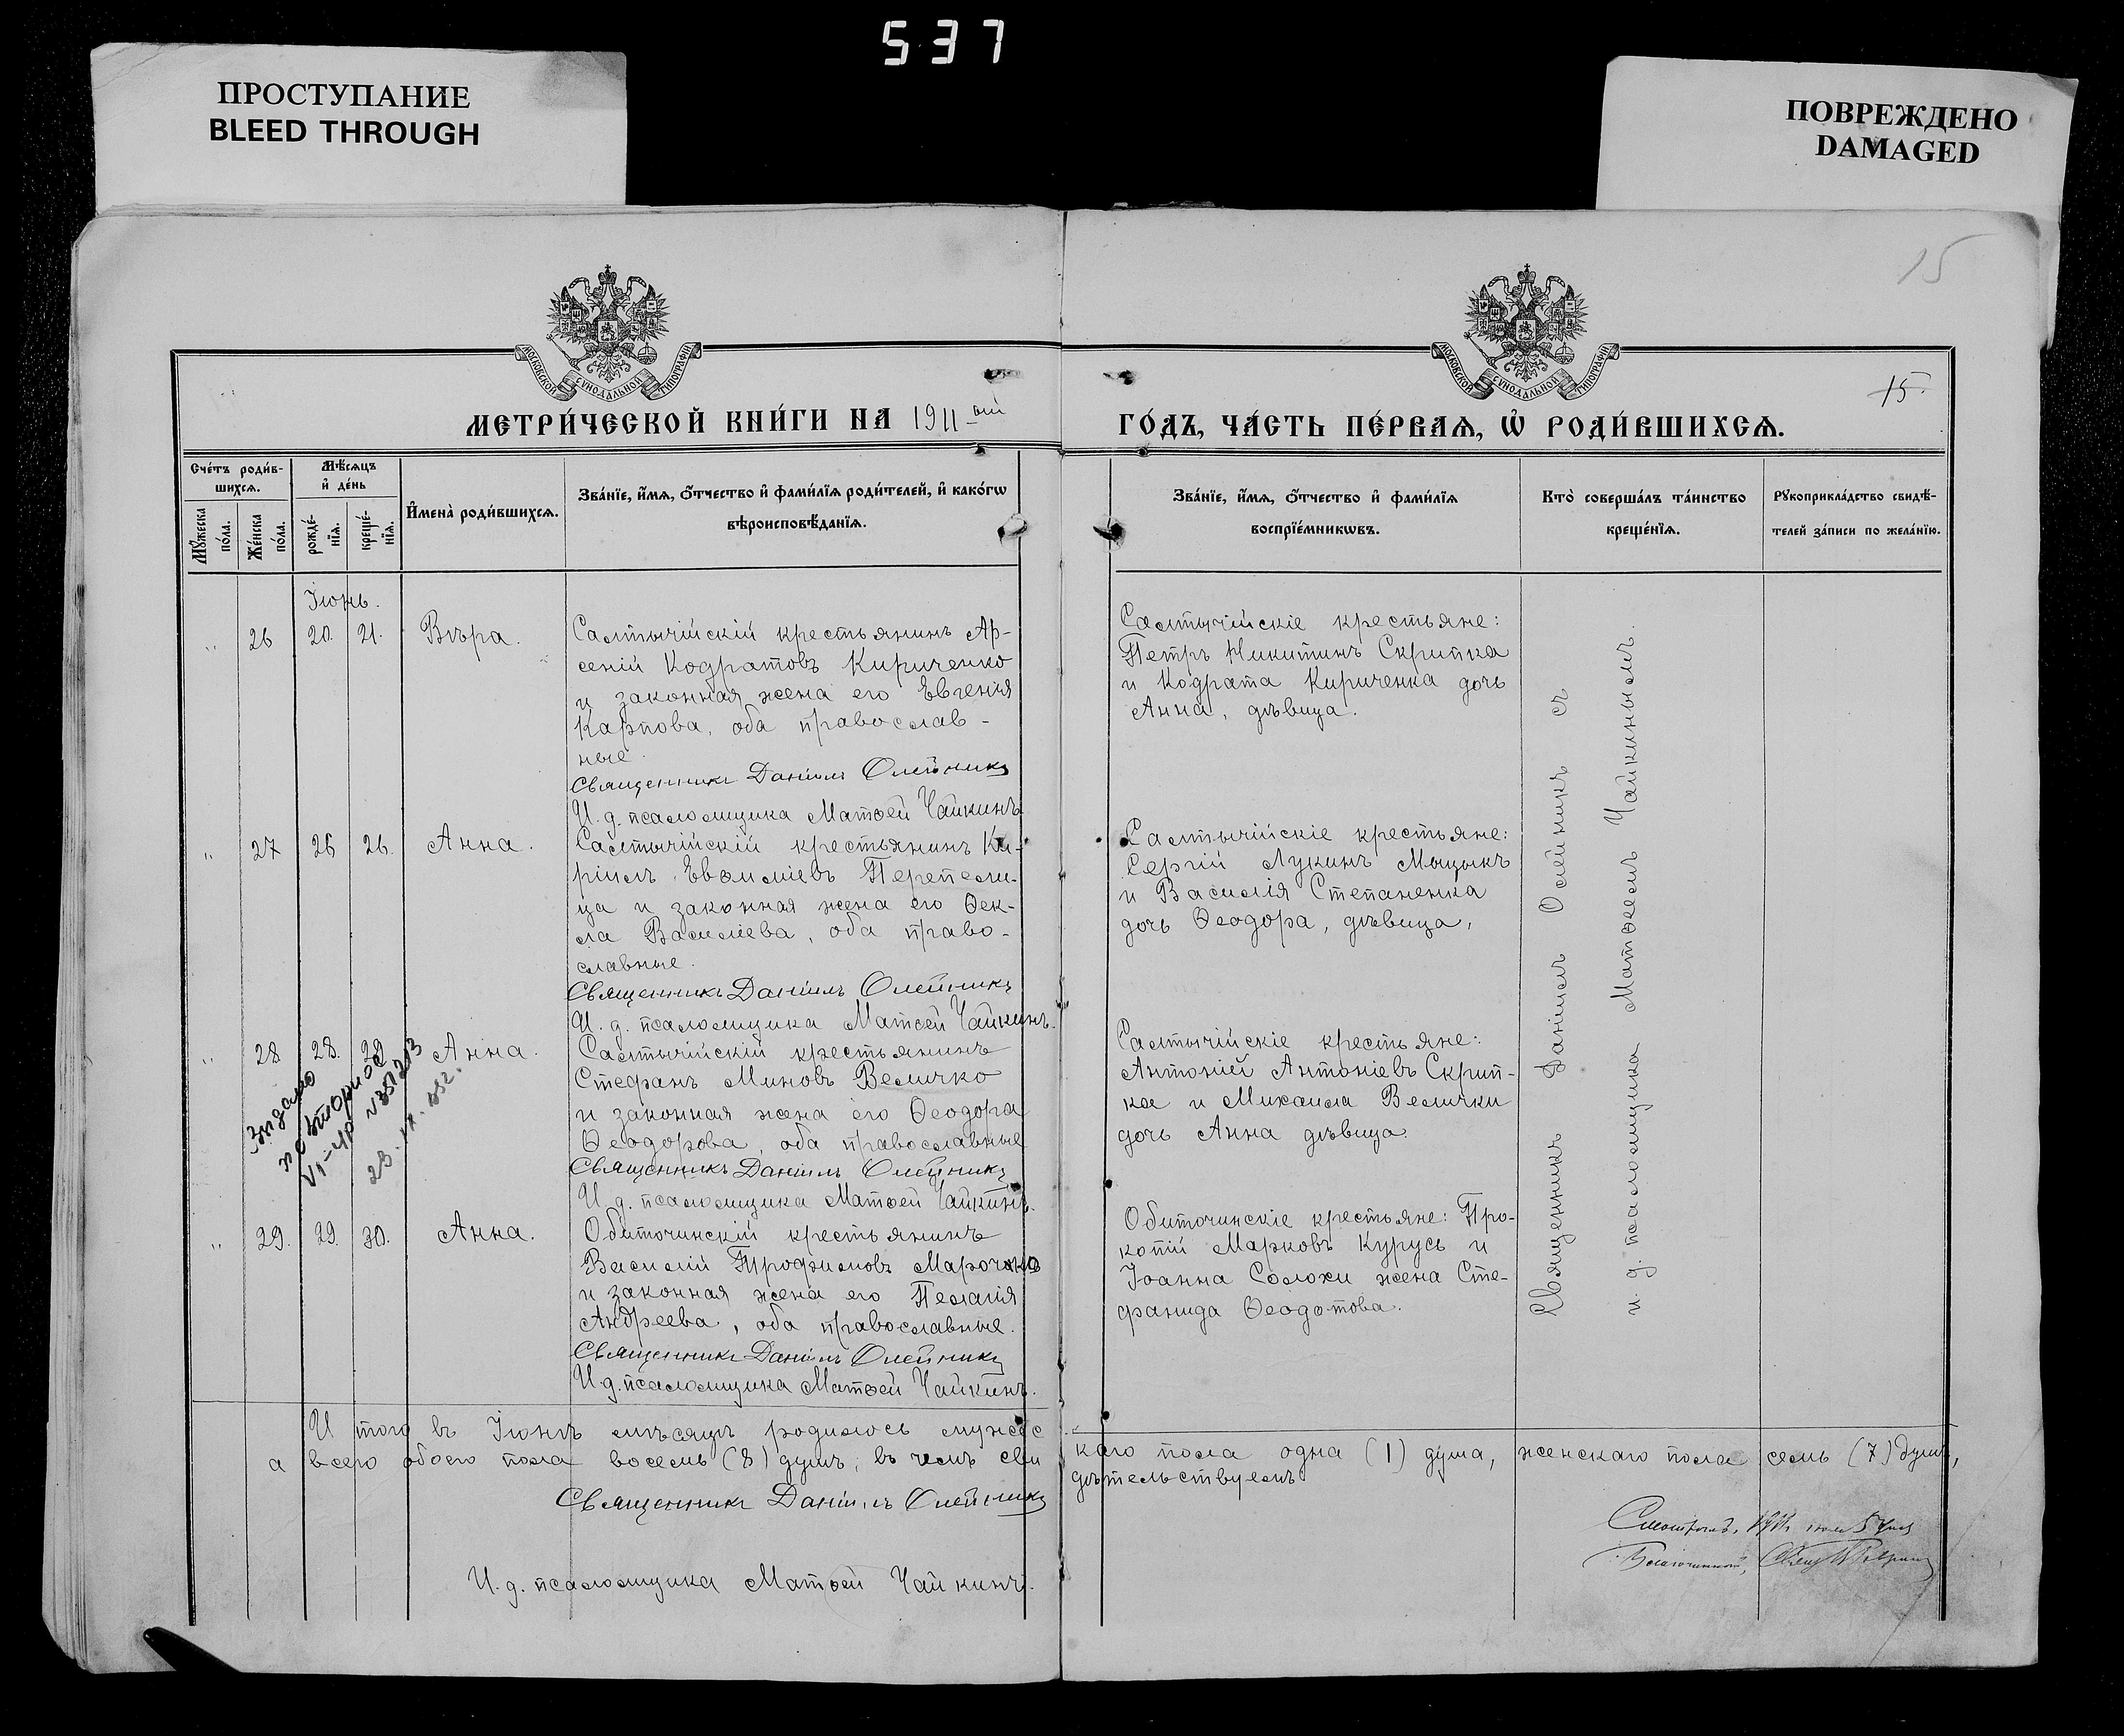 537
ПРОСТУПАНИЕ
BLEED THROUGH
ПОВРЕЖДЕНО
DAMAGED
15
МОСКОВСКОЙ СѴНОДАЛЬНОЙ ТИПОГРАФІИ
МОСКОВСКОЙ СѴНОДАЛЬНОЙ ТИПОГРАФІИ
15.
МЕТРИ́ЧЕСКОЙ КНИ́ГИ НА 1911-ый
ГО́ДЪ, ЧА́СТЬ ПЕ́РВАѦ, Ѡ҆ РОДИ́ВШИХСѦ.
Сче́тъ роди́в-
шихсѧ.
Мꙋ́жеска по́ла.
Же́нска по́ла.
Мѣ́сѧцъ
и҆ де́нь
рожде́-нїѧ.
креще́-нїѧ.
И҆мена̀ роди́вшихсѧ.
Зва́нїе, и҆́мѧ, ѻ҆́тчество и҆ фами́лїѧ роди́телей, и҆ како́гѡ
вѣроисповѣ́данїѧ.
Зва́нїе, и҆́мѧ, ѻ҆́тчество и҆ фами́лїѧ
воспрїе́мникѡвъ.
Кто̀ соверша́лъ та́инство
креще́нїѧ.
Рꙋкоприкла́дство свидѣ́-
телей за́писи по жела́нїю.
Іюнь.
„ 26 20. 21. Вѣра.
Салтычійскій крестьянинъ Ар-
сеній Кодратовъ Кириченко
и законная жена его Евгенія
Карпова, оба православ-
ные.
Священникъ Даніилъ Олейникъ
И. д. псаломщика Матѳей Чайкинъ
Салтычійскіе крестьяне:
Петръ Никитинъ Скрипка
и Кодрата Кириченка дочь
Анна, дѣвица.
„ 27 26 26. Анна.
Салтычійскій крестьянинъ Ки-
рилъ Евѳиміевъ Перепели-
ца и законная жена его Ѳек-
ла Василіева, оба право-
славные.
Священникъ Даніилъ Олейникъ
И. д. псаломщика Матѳей Чайкинъ.
Салтычійскіе крестьяне:
Сергій Лукинъ Мыцыкъ
и Василія Степаненка
дочь Ѳеодора, дѣвица,
„ 28 28. 29 Анна.
Видано
повторное
VI-ЧР №351213
28. IX. 952.
Салтычійскій крестьянинъ
Стефанъ Миновъ Величко
и законная жена его Ѳеодора
Ѳеодорова, оба православные
Священникъ Даніилъ Олейникъ
И. д. псаломщика Матѳей Чайкинъ.
Салтычійскіе крестьяне:
Антоній Антоніевъ Скрип-
ка и Михаила Велички
дочь Анна дѣвица.
„ 29. 29. 30. Анна.
Обиточинскій крестьянинъ
Василій Трофимовъ Марочко
и законная жена его Пелагія
Андреева, оба православные.
Священникъ Даніилъ Олейникъ
И. д. псаломщика Матѳей Чайкинъ.
Обиточинскіе крестьяне: Про-
копій Марковъ Курусь и
Іоанна Солохи жена Сте-
фанида Ѳеодотова.
Священникъ Даніилъ Олейникъ съ
и. д. псаломщика Матѳеемъ Чайкинымъ.
И того въ Іюнѣ мѣсяцѣ родилось мужес
каго пола одна (1) душа, женскаго пола семь (7) душъ,
а всего обоего пола восемь (8) душъ; въ чемъ сви
дѣтельствуемъ
Священникъ Даніилъ Олейникъ
И. д. псаломщика Матѳей Чайкинъ.
Благочинный, Свящ